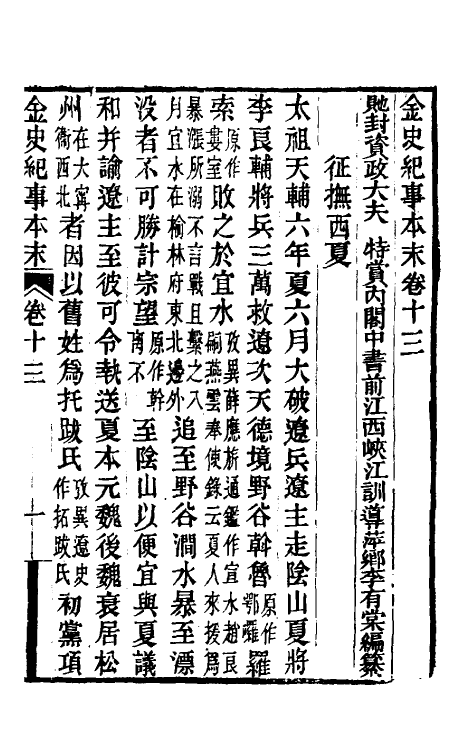 金史紀事本末卷十三
貤封資政大夫　特賞內閣中書前江西峽江訓導萍鄉李有棠編纂
征撫西夏
太祖天輔六年夏六月大破遼兵遼主走陰山夏將
李良輔將兵三萬救遼次天德境野谷斡魯原作鄂囉羅
索原作婁室敗之於宜水攷異薛應旂通鑑作宜水趙良嗣燕雲奉使錄云夏人來援爲
暴漲所溺不言戰且繫之入月宜水在榆林府東北邊外追至野谷澗水暴至漂
沒者不可勝計宗望原作斡离不至陰山以便宜與夏議
和并諭遼主至彼可令執送夏本元魏後魏衰居松
州在大寧衞西北者因以舊姓爲托跋氏攷異遼史作拓跋氏初黨項
金史紀事本末
卷十三
一